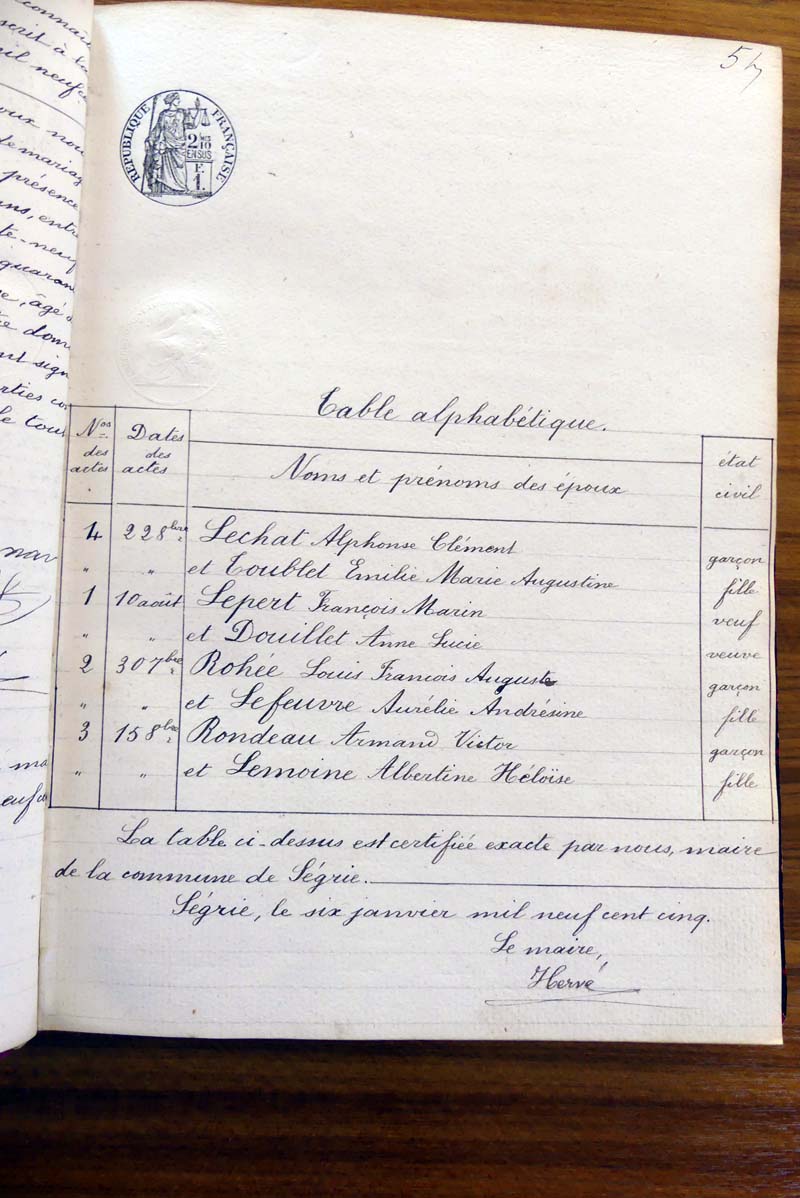 connai
scrit à la
mil neuf c
oux nou
de mariag
présence
ans, entre
te-neuf
quaran
e, âgé d
e dom
nt sign
rties co
le tous
nav
ma
euf c
57
RÉPUBLIQUE FRANÇAISE
2/10
EN SUS
F.
1.
Table alphabétique.
Nos des actes Dates des actes Noms et prénoms des époux état civil
4 22 8bre Lechat Alphonse Clément garçon
" " et Toublet Emilie Marie Augustine fille
1 10 août Lepert François Marin veuf
" " et Douillet Anne Lucie veuve
2 30 7bre Rohée Louis François Auguste garçon
" " et Lefeuvre Aurélie Andrésine fille
3 15 8bre Rondeau Armand Victor garçon
" " et Lemoine Albertine Héloïse fille
La table ci-dessus est certifiée exacte par nous, maire
de la commune de Ségrie.
Ségrie, le six janvier mil neuf cent cinq.
Le maire,
Hervé